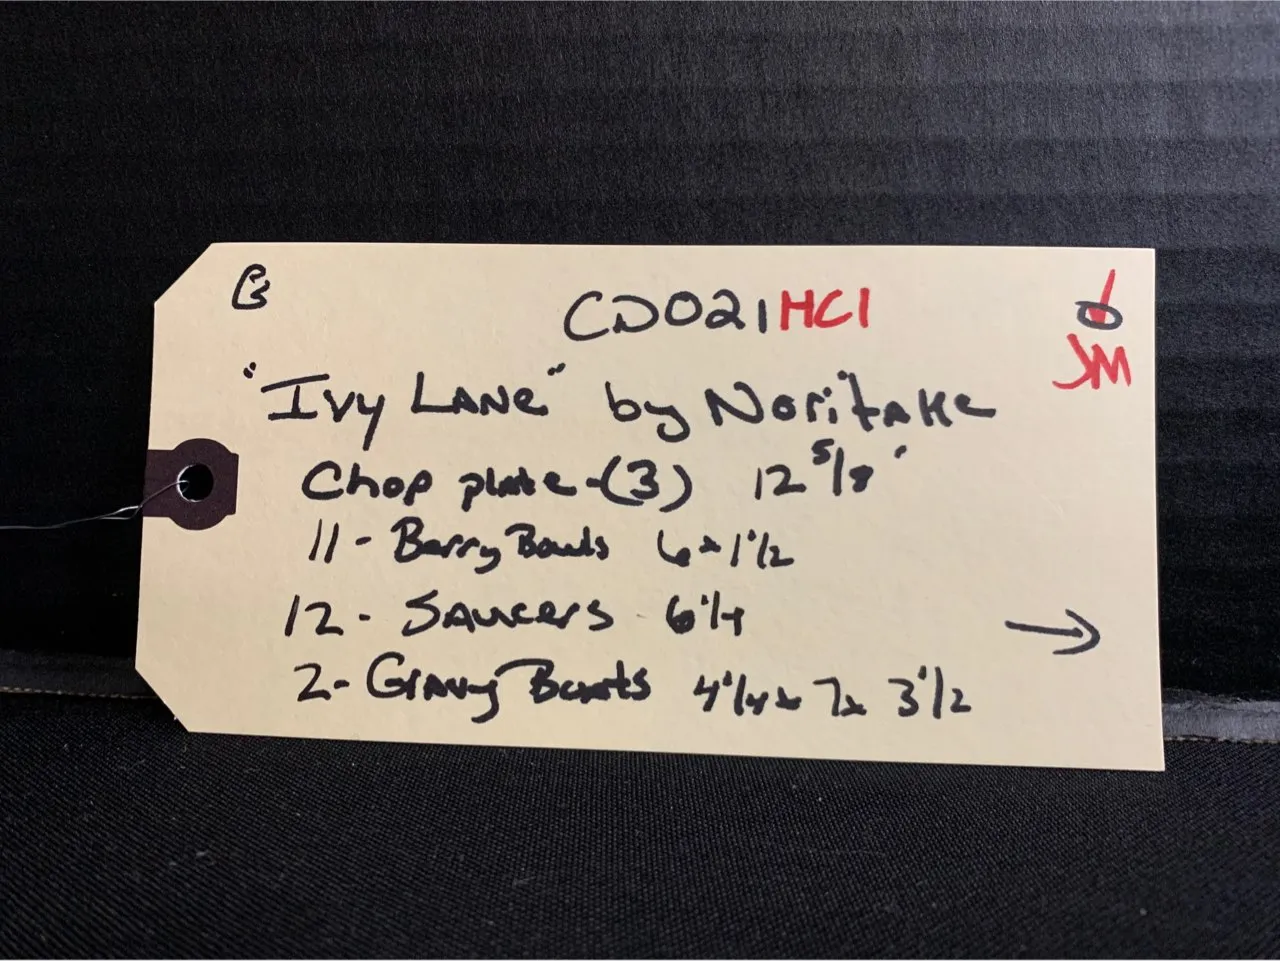 B
CD021HC1
JM
"Ivy Lane" by Noritake
Chop plate - (3) 12 5/8"
11 - Berry Bowls 6 x 1 1/2
12 - Saucers 6 1/4
→
2 - Gravy Boats 4 1/4 x 7 x 3 1/2